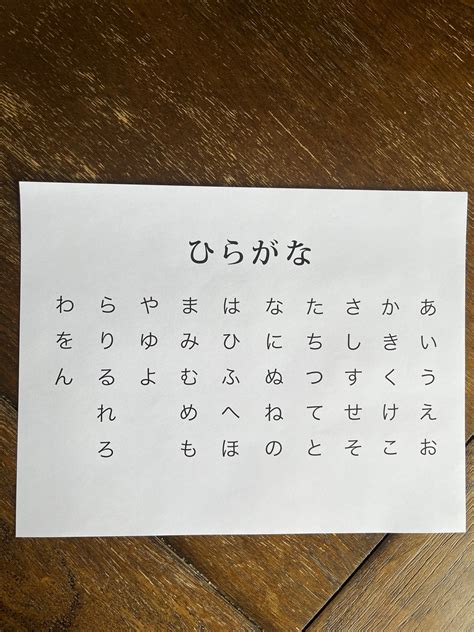 ひらがな
あいうえお
かきくけこ
さしすせそ
たちつてと
なにぬねの
はひふへほ
まみむめも
やゆよ
らりるれろ
わをん